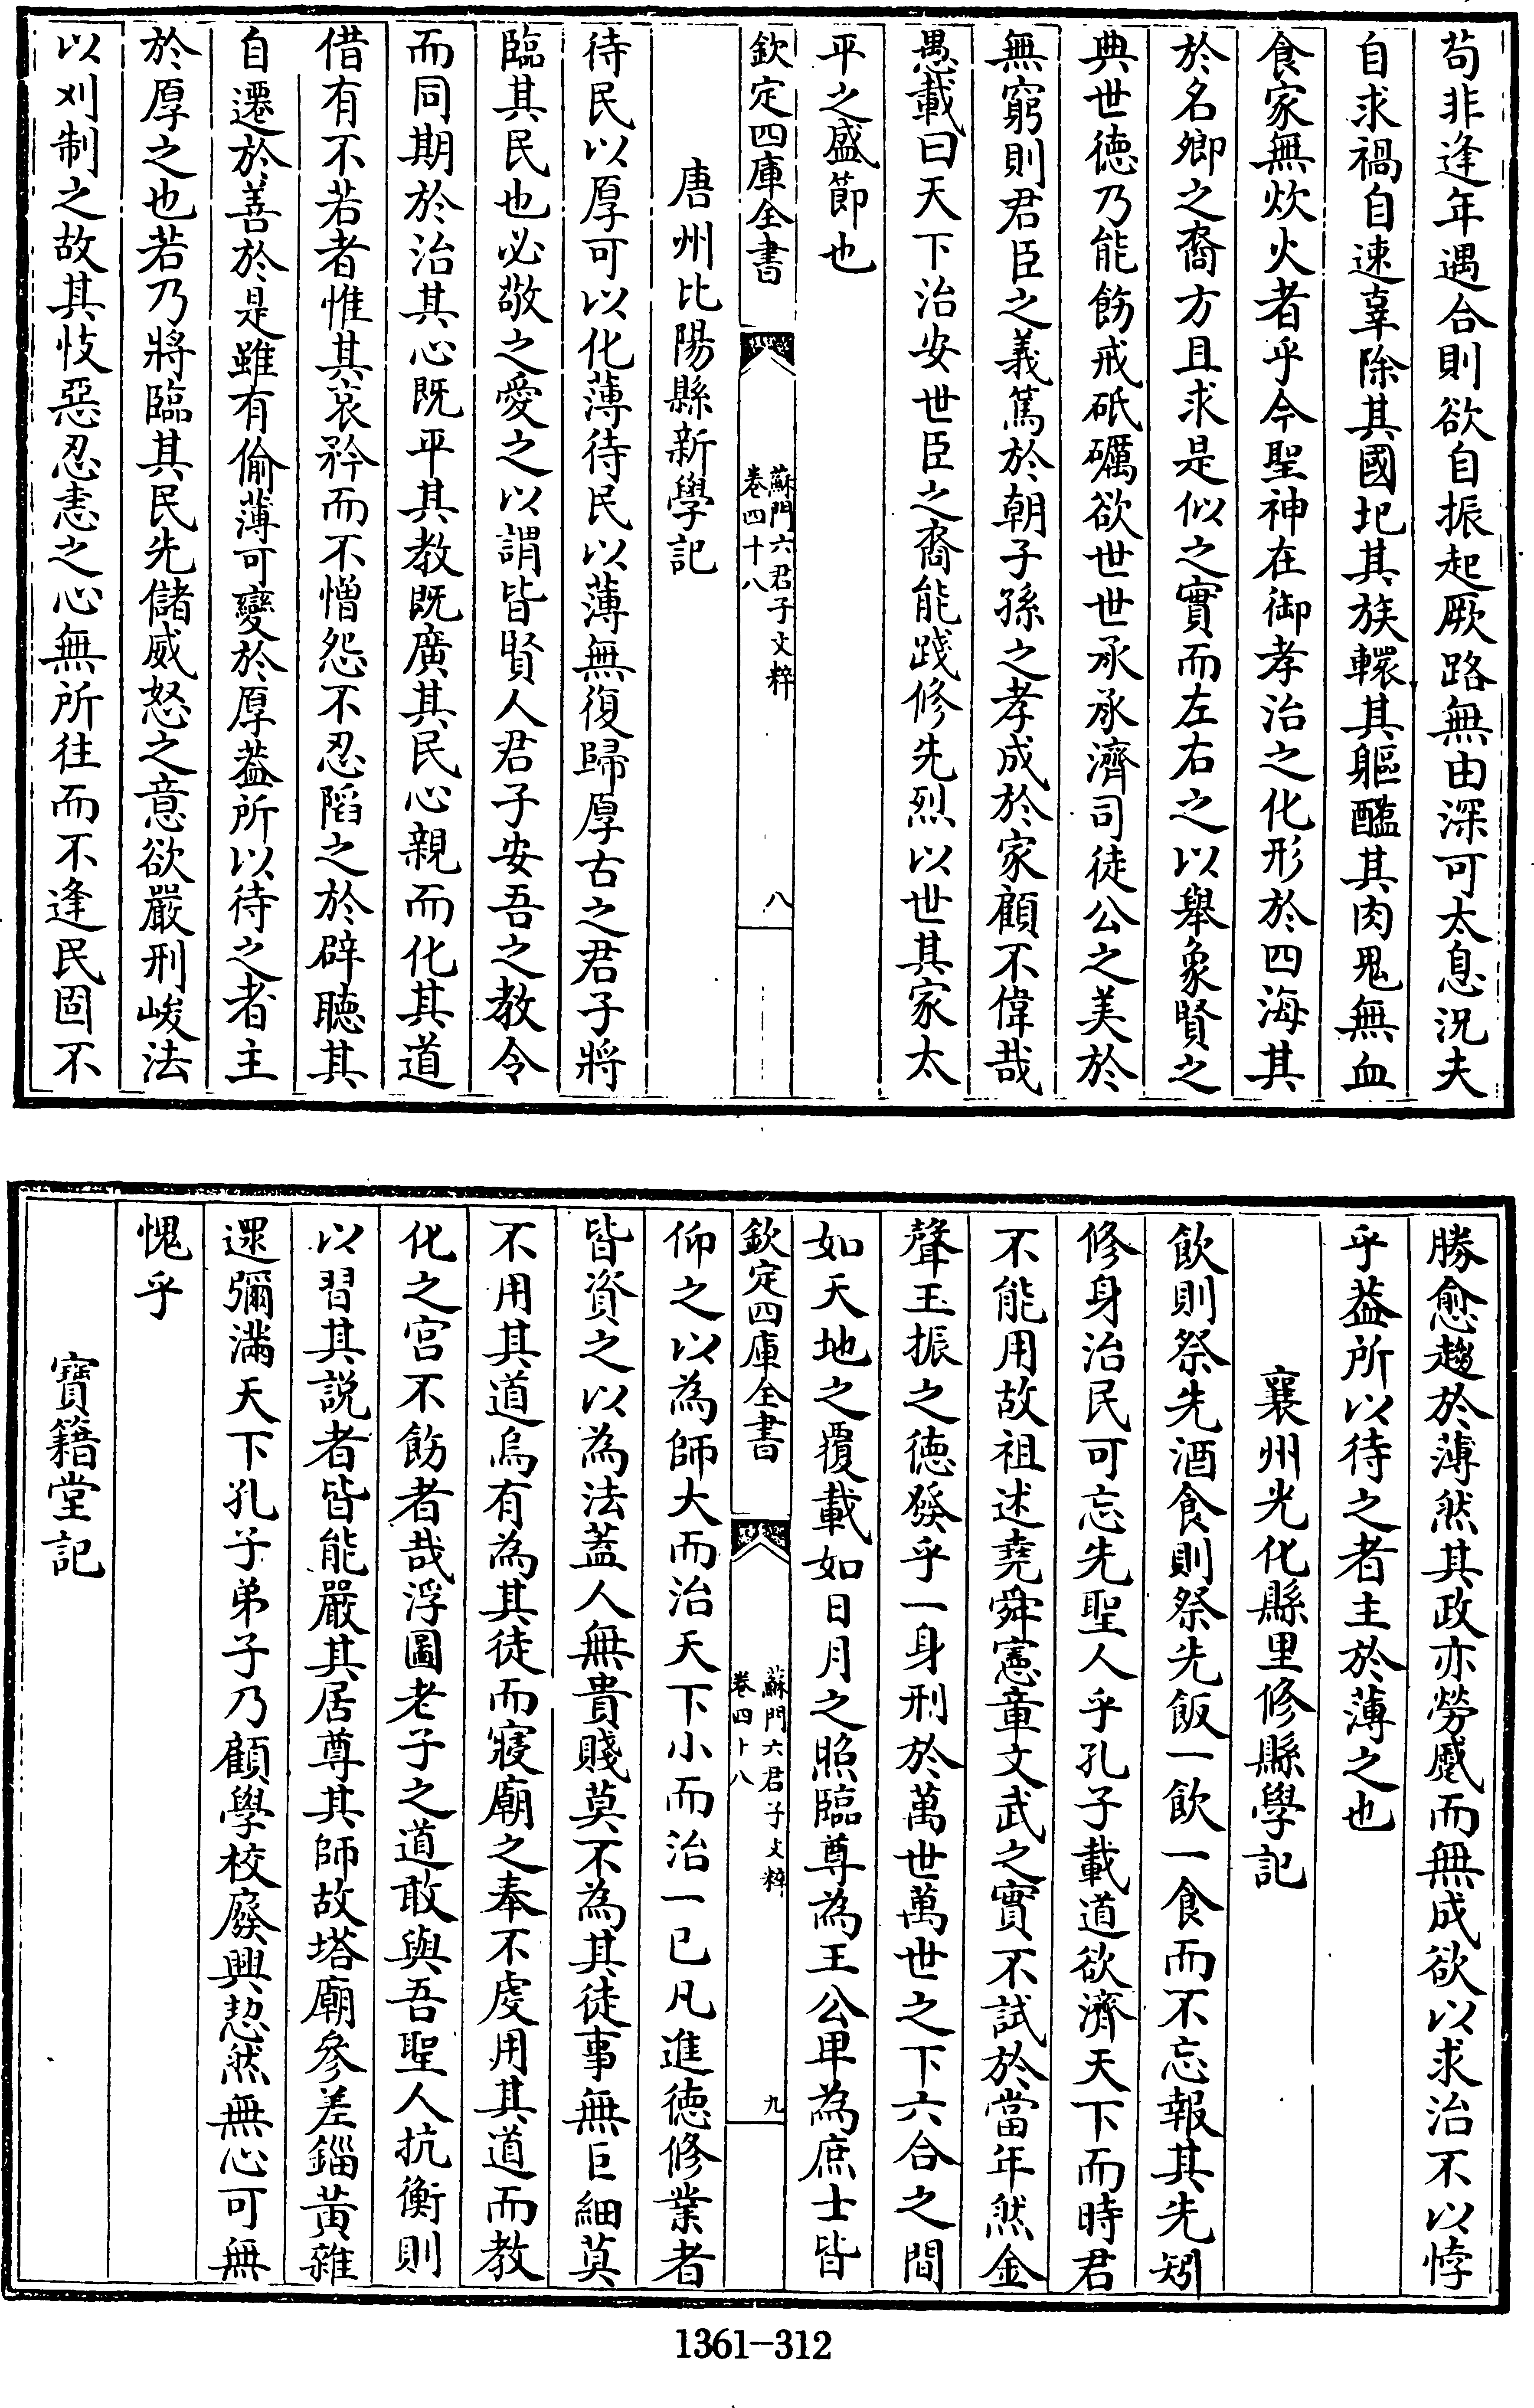 苟非逢年遇合則欲自振起厥路無由深可太息況夫
自求禍自速辜除其國圯其族轘其軀醢其肉鬼無血
食家無炊火者乎今聖神在御孝治之化形於四海其
於名卿之裔方且求是似之實而左右之以舉象賢之
典世徳乃能飭戒砥礪欲世世承承濟司徒公之美於
無窮則君臣之義篤於朝子孫之孝成於家顧不偉哉
愚載曰天下治安世臣之裔能踐修先烈以世其家太
平之盛節也
欽定四庫全書
蘇門六君子文粹
卷四十八
八
唐州比陽縣新學記
待民以厚可以化薄待民以薄無復歸厚古之君子將
臨其民也必敬之愛之以謂皆賢人君子安吾之教令
而同期於治其心既平其教既廣其民心親而化其道
借有不若者惟其哀矜而不憎怨不忍䧟之於辟聽其
自遷於善於是雖有偷薄可變於厚葢所以待之者主
於厚之也若乃將臨其民先儲威怒之意欲嚴刑峻法
以刈制之故其忮惡忍恚之心無所往而不逢民固不
勝愈趨於薄然其政亦勞蹙而無成欲以求治不以悖
乎葢所以待之者主於薄之也
襄州光化縣里修縣學記
飲則祭先酒食則祭先飯一飲一食而不忘報其先矧
修身治民可忘先聖人乎孔子載道欲濟天下而時君
不能用故祖述堯舜憲章文武之實不試於當年然金
聲玉振之徳發乎一身刑於萬世萬世之下六合之間
如天地之覆載如日月之照臨尊為王公卑為庶士皆
欽定四庫全書
蘇門六君子文粹
卷四十八
九
仰之以為師大而治天下小而治一已凡進徳修業者
皆資之以為法蓋人無貴賤莫不為其徒事無巨細莫
不用其道烏有為其徒而寢廟之奉不虔用其道而教
化之宮不飭者哉浮圖老子之道敢與吾聖人抗衡則
以習其説者皆能嚴其居尊其師故塔廟參差錙黄雜
遝彌滿天下孔子弟子乃顧學校廢興恝然無心可無
愧乎
寶籍堂記
1361-312